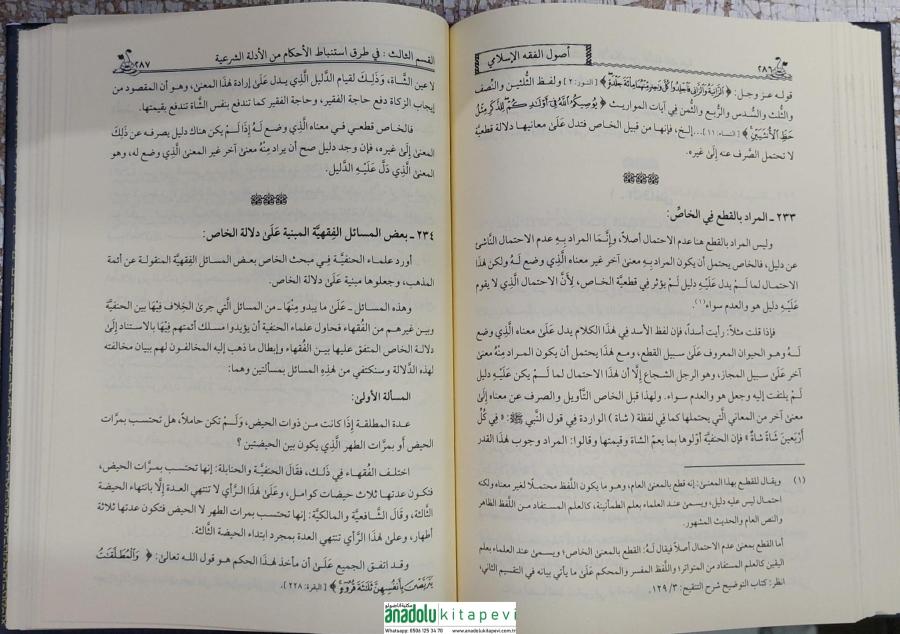 ٢٨٦
أصول الفقه الإسلامي
قوله عز وجل: ﴿ ٱلزَّانِيَةُ وَٱلزَّانِي فَٱجْلِدُوا۟ كُلَّ وَٰحِدٍ مِّنْهُمَا مِا۟ئَةَ جَلْدَةٍ ﴾ [النور: ٢] ولفظ الثُّلثين والنِّصف
والثُّلث والسُّدس والرُّبع والثُّمن في آيات المواريث ﴿ يُوصِيكُمُ ٱللَّهُ فِىٓ أَوْلَٰدِكُمْ لِلذَّكَرِ مِثْلُ
حَظِّ ٱلْأُنثَيَيْنِ ﴾ [النساء: ١١]...إلخ، فإنها من قبيل الخاص فتدل عَلَىٰ معانيها دلالة قطعيَّة
لا تحتمل الصَّرف عنه إلَىٰ غيره.
٢٣٣ ـ المراد بالقطع فِي الخاصِّ:
وليس المراد بالقطع هنا عدم الاحتمال أصلاً، وإنَّمَا المراد بِهِ عدم الاحتمال النَّاشئ
عن دليل، فالخاص يحتمل أن يكون المراد بِهِ معنىٰ آخر غير معناه الَّذِي وضع لَـهُ ولكن هٰذا
الاحتمال لما لَـمْ يدل عَلَيْهِ دليل لَـمْ يؤثر فِي قطعيَّة الخاص، لأَنَّ الاحتمال الَّذي لا يقوم
عَلَيْهِ دليل هو والعدم سواء(١).
فإذا قلت مثلاً: رأيت أسداً، فإن لفظ الأسد فِي هٰذا الكلام يدل عَلَىٰ معناه الَّذِي وضع
لَـهُ وهو الحيوان المعروف عَلَىٰ سبيل القطع، ومع هٰذا يحتمل أن يكون المراد مِنْهُ معنىٰ
آخر عَلَىٰ سبيل المجاز، وهو الرجل الشجاع إلَّا أن هٰذا الاحتمال لما لَـمْ يكن عَلَيْهِ دليل
لَـمْ يلتفت إليه وجعل هو والعدم سواء. ولهذا قبل الخاص التَّأويل والصرف عن معناه إلَىٰ
معنىٰ آخر من المعاني الَّتي يحتملها كما فِي لفظة ( شاة ) الواردة فِي قول النَّبي ﷺ: « فِي كُلِّ
أَرْبَعِينَ شَاةً شَاةٌ » فإن الحنفيَّة أوَّلوها بما يعمُّ الشاة وقيمتها وقالوا: المراد وجوب هٰذا القدر
(١) ويقال للقطع بهذا المعنىٰ: إنه قطع بالمعنىٰ العام، وهو ما يكون اللَّفظ محتملاً لغير معناه ولكنه
احتمال ليس عليه دليل، ويسمىٰ عند العلماء بعلم الطمأنينة، كالعلم المستفاد من اللَّفظ الظاهر
والنص العام والحديث المشهور.
أما القطع بمعنىٰ عدم الاحتمال أصلاً فيقال لَـهُ: القطع بالمعنىٰ الخاص، ويسمىٰ عند العلماء بعلم
اليقين كالعلم المستفاد من المتواتر؛ واللَّفظ المفسر والمحكم عَلَىٰ ما يأتي بيانه فِي التقسيم الثاني،
انظر: كتاب التوضيح شرح التنقيح: ٣/ ١٢٩.
القسم الثالث: في طرق استنباط الأحكام من الأدلة الشرعية
٢٨٧
لا عين الشَّاة، وَذَلِكَ لقيام الدَّليل الَّذي يدل عَلَىٰ إرادة هٰذا المعنىٰ، وهو أن المقصود من
إيجاب الزكاة دفع حاجة الفقير، وحاجة الفقير كما تندفع بنفس الشَّاة تندفع بقيمتها.
فالخاص قطعي فـي معناه الَّذي وضع لَـهُ إذَا لَـمْ يكن هناك دليل يصرفه عن ذَلِكَ
المعنىٰ إلَىٰ غيره، فإن وجد دليل صح أن يراد مِنْهُ معنىٰ آخر غير المعنىٰ الَّذي وضع له، وهو
المعنىٰ الَّذي دَلَّ عَلَيْهِ الدَّليل.
٢٣٤ ـ بعض المسائل الفِقهيَّة المبنية عَلَىٰ دلالة الخاص:
أورد علماء الحنفيَّة فِي مبحث الخاص بعض المسائل الفِقهيَّة المنقولة عن أئمة
المذهب، وجعلوها مبنية عَلَىٰ دلالة الخاص.
وهذه المسائل ـ عَلَىٰ ما يبدو منْهَا ـ من المسائل الَّتي جرىٰ الخلاف فِيْهَا بين الحنفيَّة
وبين غيرهـم من الفُقهاء فحاول علماء الحنفيَّة أن يؤيدوا مسلك أئمتهم فِيْهَا بالاستناد إلَىٰ
دلالة الخاص المتفق عليها بين الفُقهاء وإبطال ما ذهب إليه المخالفون لهم ببيان مخالفته
لهذه الدَّلالة وسنكتفي من هٰذِهِ المسائل بمسألتين وهما:
المسألة الأولىٰ:
عـدة المطلقـة إذَا كانت مـن ذوات الحيض، وَلَـمْ تكن حاملاً، هل تحتسب بمرَّات
الحيض أو بمرات الطهر الَّذِي يكون بين الحيضتين ؟
اختلف الفُقهـاء فِي ذَلِـك، فقال الحنفيَّة والحنابلة: إنها تحتسب بمرَّات الحيض،
فتكون عدتها ثلاث حيضات كوامل، وَعَلَىٰ هٰذا الـرَّأي لا تنتهي العدة إلَّا بانتهاء الحيضة
الثَّالثة، وقال الشَّافعيَّة والمالكيَّة: إنها تحتسب بمرات الطهر لا الحيض فتكون عدتها ثلاثة
أطهار، وعلىٰ هٰذا الرَّأي تنتهي العدة بمجرد ابتداء الحيضة الثَّالثة.
وقـد اتفـق الجميع عَلَـىٰ أن مأخذ لهٰذا الحكم هو قول اللـه تعالىٰ: ﴿ وَٱلْمُطَلَّقَٰتُ
يَتَرَبَّصْنَ بِأَنفُسِهِنَّ ثَلَٰثَةَ قُرُوٓءٍ ﴾ [البقرة: ٢٢٨].
مكتبة الأناضول
anadolu kitapevi
Whatsapp: 0506 125 34 78 www.anadolukitapevi.com.tr